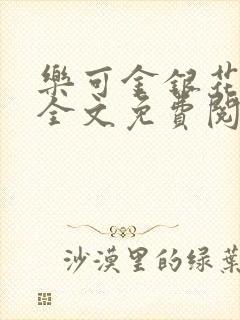 樂可金銀花
全文免費閱
沙漠里的绿葉